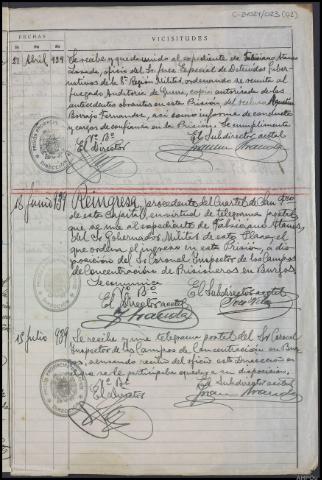 C-24524/023 (02)
FECHAS
VICISITUDES
21 Abril 939 Se recibe y queda unido al expediente de Fabriciano
Losada, oficio del Sr Juez Especial de Detenidos Guber-
nativos de la 8ª Región Militar, ordenando se remita al
Juzgado Auditoria de Guerra, copia autorizada de los
antecedentes obrantes en esta Prisión, del recluso
Borrajo Fernandez, así como informe de conducta
y cargos de confianza en la Prisión. Se cumplimenta
Vº Bº
El Director
El Subdirector acctal
18 Junio 939 Reingresa procedente del Cuartel de San
de esta Capital, en virtud de telegrama postal
que se une al expediente de Fabriciano
del Sr Gobernador Militar de esta Plaza,
que ordena el ingreso en esta Prisión, a dis-
posición del Sr Coronel Inspector de los Campos
de Concentración de Prisioneros en Burgos.
Se comunica
Vº Bº
El Director acctal
El Subdirector acctal
15 Julio 939 Se recibe y une telegrama postal del Sr Coronel
Inspector de los Campos de Concentración en Bur-
gos, acusando recibo del oficio de esta Dirección en
que se le participaba quedaba a su disposición.
Vº Bº
El Director
El Subdirector acctal
AHPOU